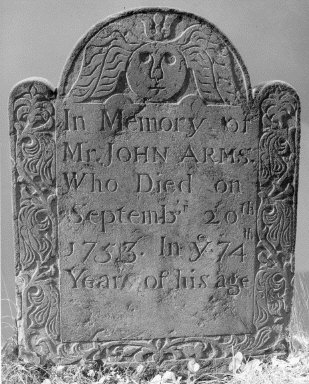 In Memory of
Mr. JOHN ARMS.
Who Died on
Septembr. 20th
1753. In ye. 74th
Years of his age